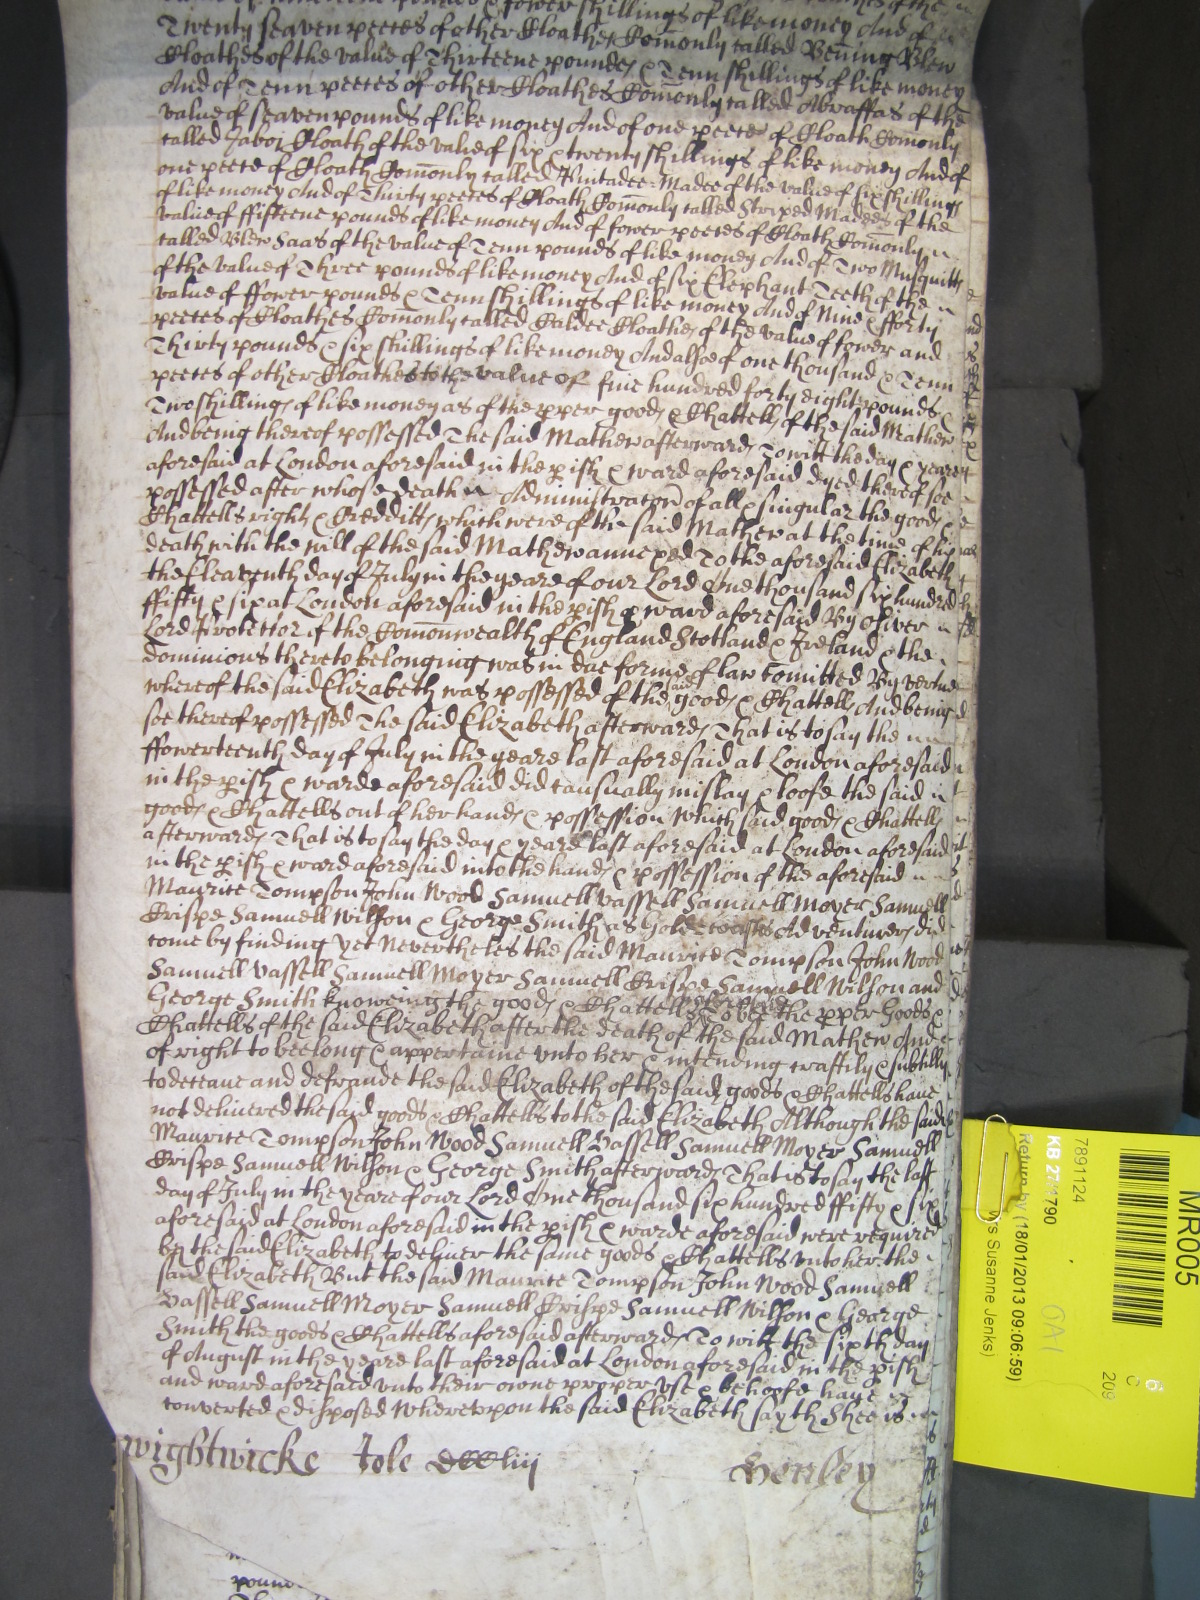 fower shillings of like money And of
Twenty seaven peeces of other Cloathes Comonly called Bening Blew
Cloathes of the value of Thirteene pounds & Tenn shillings of like money
And of Tenn peeces of other Cloathes Comonly called Abraffas of the
value of seaven pounds of like money And of one peece of Cloath Comonly
called Jaboi Cloath of the value of six & twenty shillings of like money And of
one peece of Cloath Comonly called Madee of the value of six shillings
of like money And of Thirty peeces of Cloath Comonly called Striped Madees of the
value of ffifteene pounds of like money And of fower peeces of Cloath Comonly
called Blew Saas of the value of Tenn pounds of like money And of Two Musquitt
of the value of Three pounds of like money And of six Elephant Teeth of the
value of ffower pounds & Tenn shillings of like money And of Nine & fforty
peeces of Cloathes Comonly called Caldee Cloathes of the value of fower and
Thirty pounds & six shillings of like money And alsoe of one thousand & Tenn
peeces of other Cloathes to the value of five hundred forty eight pounds &
Two shillings of like money as of the pper goods & Chattells of the said Mathew
And being thereof possessed The said Mathew afterwards To witt the day & yeare
aforesaid at London aforesaid in the pish & ward aforesaid dyed thereof soe
possessed after whose death Administracon of all & singular the goods
Chattells rights & Credditts which were of the said Mathew at the time of his
death with the will of the said Mathew annexed To the aforesaid Elizabeth
the Eleaventh day of July in the yeare of our Lord One thousand six hundred
ffifty & six at London aforesaid in the pish & ward aforesaid By Oliver
Lord Protector of the Comonwealth of England Scotland & Ireland & the
dominions thereto belonging was in due forme of law comitted By vertue
whereof the said Elizabeth was possessed of the said goods & Chattells And being
soe thereof possessed The said Elizabeth afterwards That is to say the
ffowerteenth day of July in the yeare last aforesaid at London aforesaid
in the pish & warde aforesaid did causually mislay & loose the said
goods & Chattells out of her hands & possession Which said goods & Chattells
afterwards That is to say the day & yeare last aforesaid at London aforesaid
in the pish & ward aforesaid into the hands & possession of the aforesaid
Maurice Tompson John Wood Samuell Vassell Samuell Moyer Samuell
Crispe Samuell Wilson & George Smith as Gold coasts Adventurers did
come by finding yet Nevertheles the said Maurice Tompson John Wood
Samuell Vassell Samuell Moyer Samuell Crispe Samuell Wilson and
George Smith knoweing the goods & Chattells aforesaid To bee the pper Goods &
Chattells of the said Elizabeth after the death of the said Mathew And
of right to beelong & appertaine unto her & intending craftily & subtilly
to deceave and defraude the said Elizabeth of the said goods & Chattells have
not delivered the said goods & Chattells to the said Elizabeth Although the said
Maurice Tompson John Wood Samuell Vassell Samuell Moyer Samuell
Crispe Samuell Wilson & George Smith afterwards That is to say the last
day of July in the yeare of our Lord One thousand six hundred ffifty & six
aforesaid at London aforesaid in the pish & warde aforesaid were required
by the said Elizabeth to deliver the same goods & Chattells unto her the
said Elizabeth But the said Maurice Tompson John Wood Samuell
Vassell Samuell Moyer Samuell Crispe Samuell Wilson & George
Smith the goods & Chattells aforesaid afterwards To witt the sixth day
of August in the yeare last aforesaid at London aforesaid in the pish
and ward aforesaid unto their owne propper use & behoofe have
converted & disposed Whereupon the said Elizabeth sayth Shee is
Wightwicke Iole Henley
pound
MR005
6
C
209
7891124
KB 27/1790
Return by (18/01/2013 09:06:59)
Susanne Jenks)